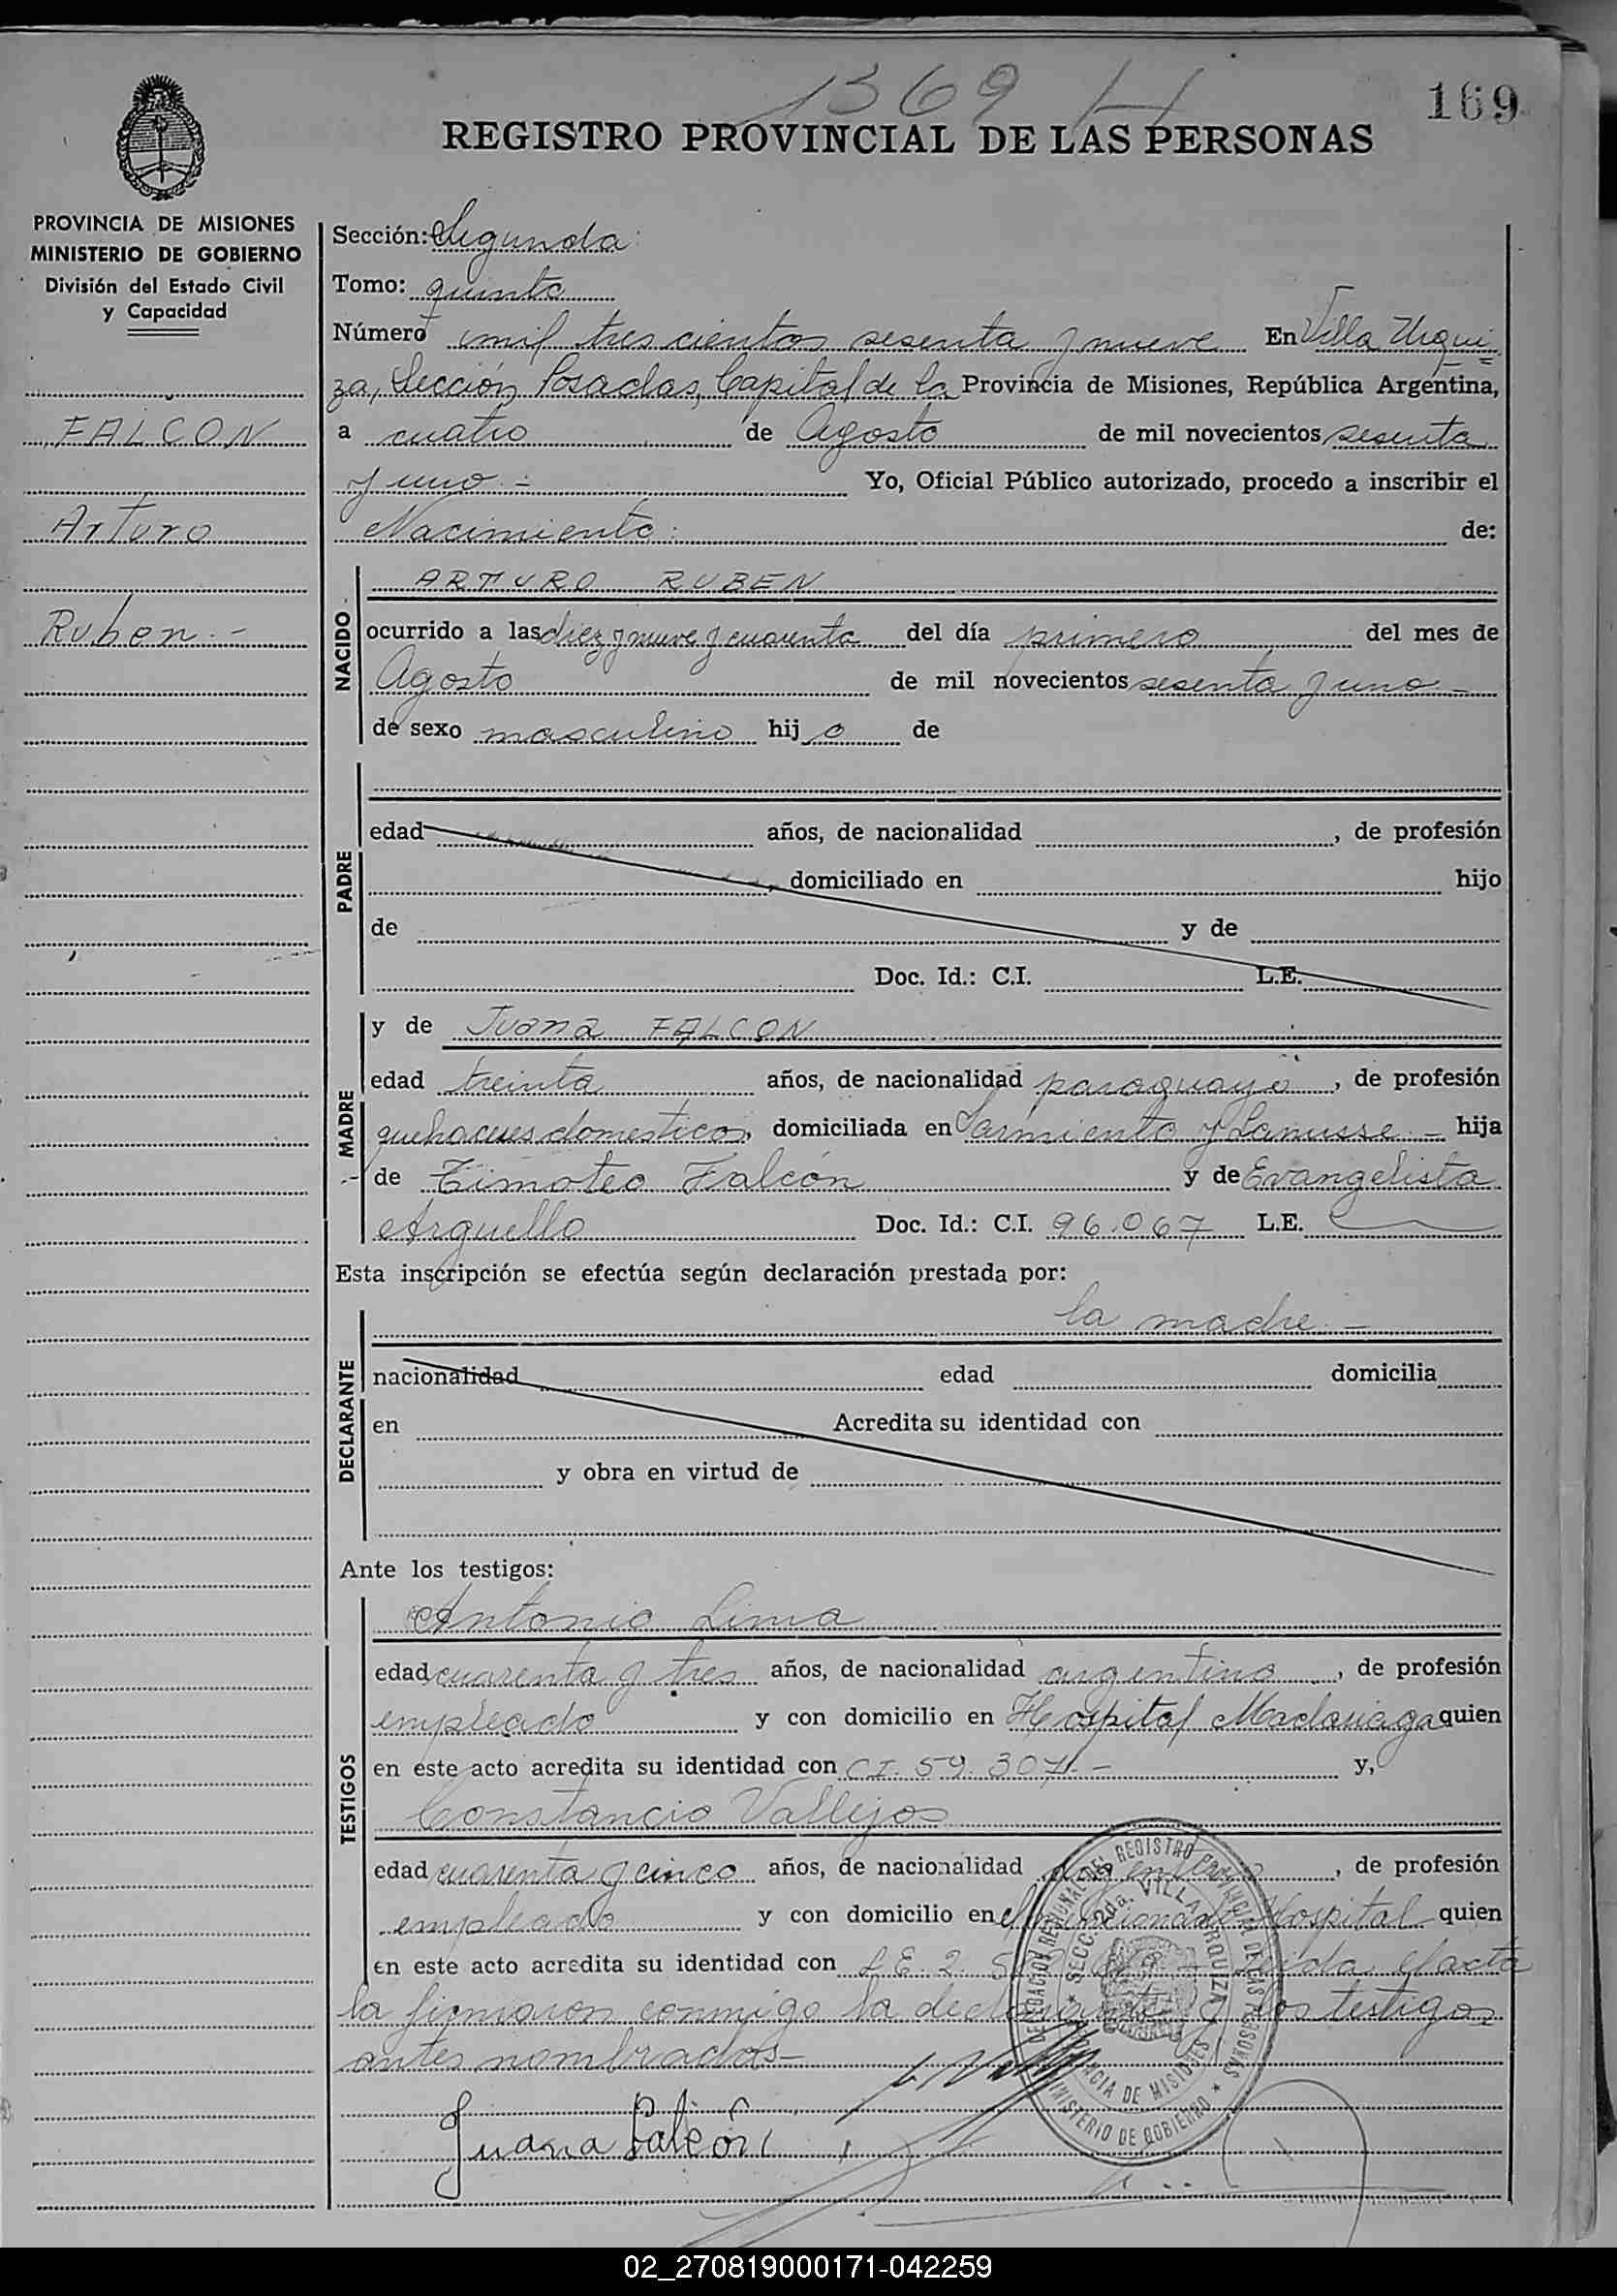 1369 H
169
REGISTRO PROVINCIAL DE LAS PERSONAS
PROVINCIA DE MISIONES
MINISTERIO DE GOBIERNO
División del Estado Civil
y Capacidad
FALCON
Arturo
Ruben.-
Sección: Segunda
Tomo: quinto
Número mil trescientos sesenta y nueve En Villa Urqui
za, Sección Posadas, Capital de la Provincia de Misiones, República Argentina,
a cuatro de Agosto de mil novecientos sesenta
y uno.- Yo, Oficial Público autorizado, procedo a inscribir el
Nacimiento: de:
NACIDO
ARTURO RUBEN
ocurrido a las diez y nueve y cuarenta del día primero del mes de
Agosto de mil novecientos sesenta y uno.-
de sexo masculino hij o de
PADRE
edad años, de nacionalidad , de profesión
, domiciliado en hijo
de y de
Doc. Id.: C.I. L.E.
MADRE
y de Juana FALCON
edad treinta años, de nacionalidad paraguaya, de profesión
quehaceres domesticos, domiciliada en Sarmiento y Lanusse.- hija
de Timoteo Falcón y de Evangelista
Arguello Doc. Id.: C.I. 96.067 L.E.
Esta inscripción se efectúa según declaración prestada por:
DECLARANTE
la madre.-
nacionalidad edad domicilia
en Acredita su identidad con
y obra en virtud de
Ante los testigos:
TESTIGOS
Antonio Lima
edad cuarenta y tres años, de nacionalidad argentina, de profesión
empleado y con domicilio en Hospital Madariaga quien
en este acto acredita su identidad con C.I. 59.307.- y,
Constancio Vallejos
edad cuarenta y cinco años, de nacionalidad argentina, de profesión
empleado y con domicilio en el mencionado Hospital quien
en este acto acredita su identidad con L.E. 2.5 Leida el acta
la firmaron conmigo la declarante y los testigos
antes nombrados.-
DELEGACION REGIONAL DEL REGISTRO PROVINCIAL DE LAS PERSONAS
SECC. 2da. VILLA URQUIZA
PROVINCIA DE MISIONES
MINISTERIO DE GOBIERNO
Juana Falcón
02_270819000171-042259